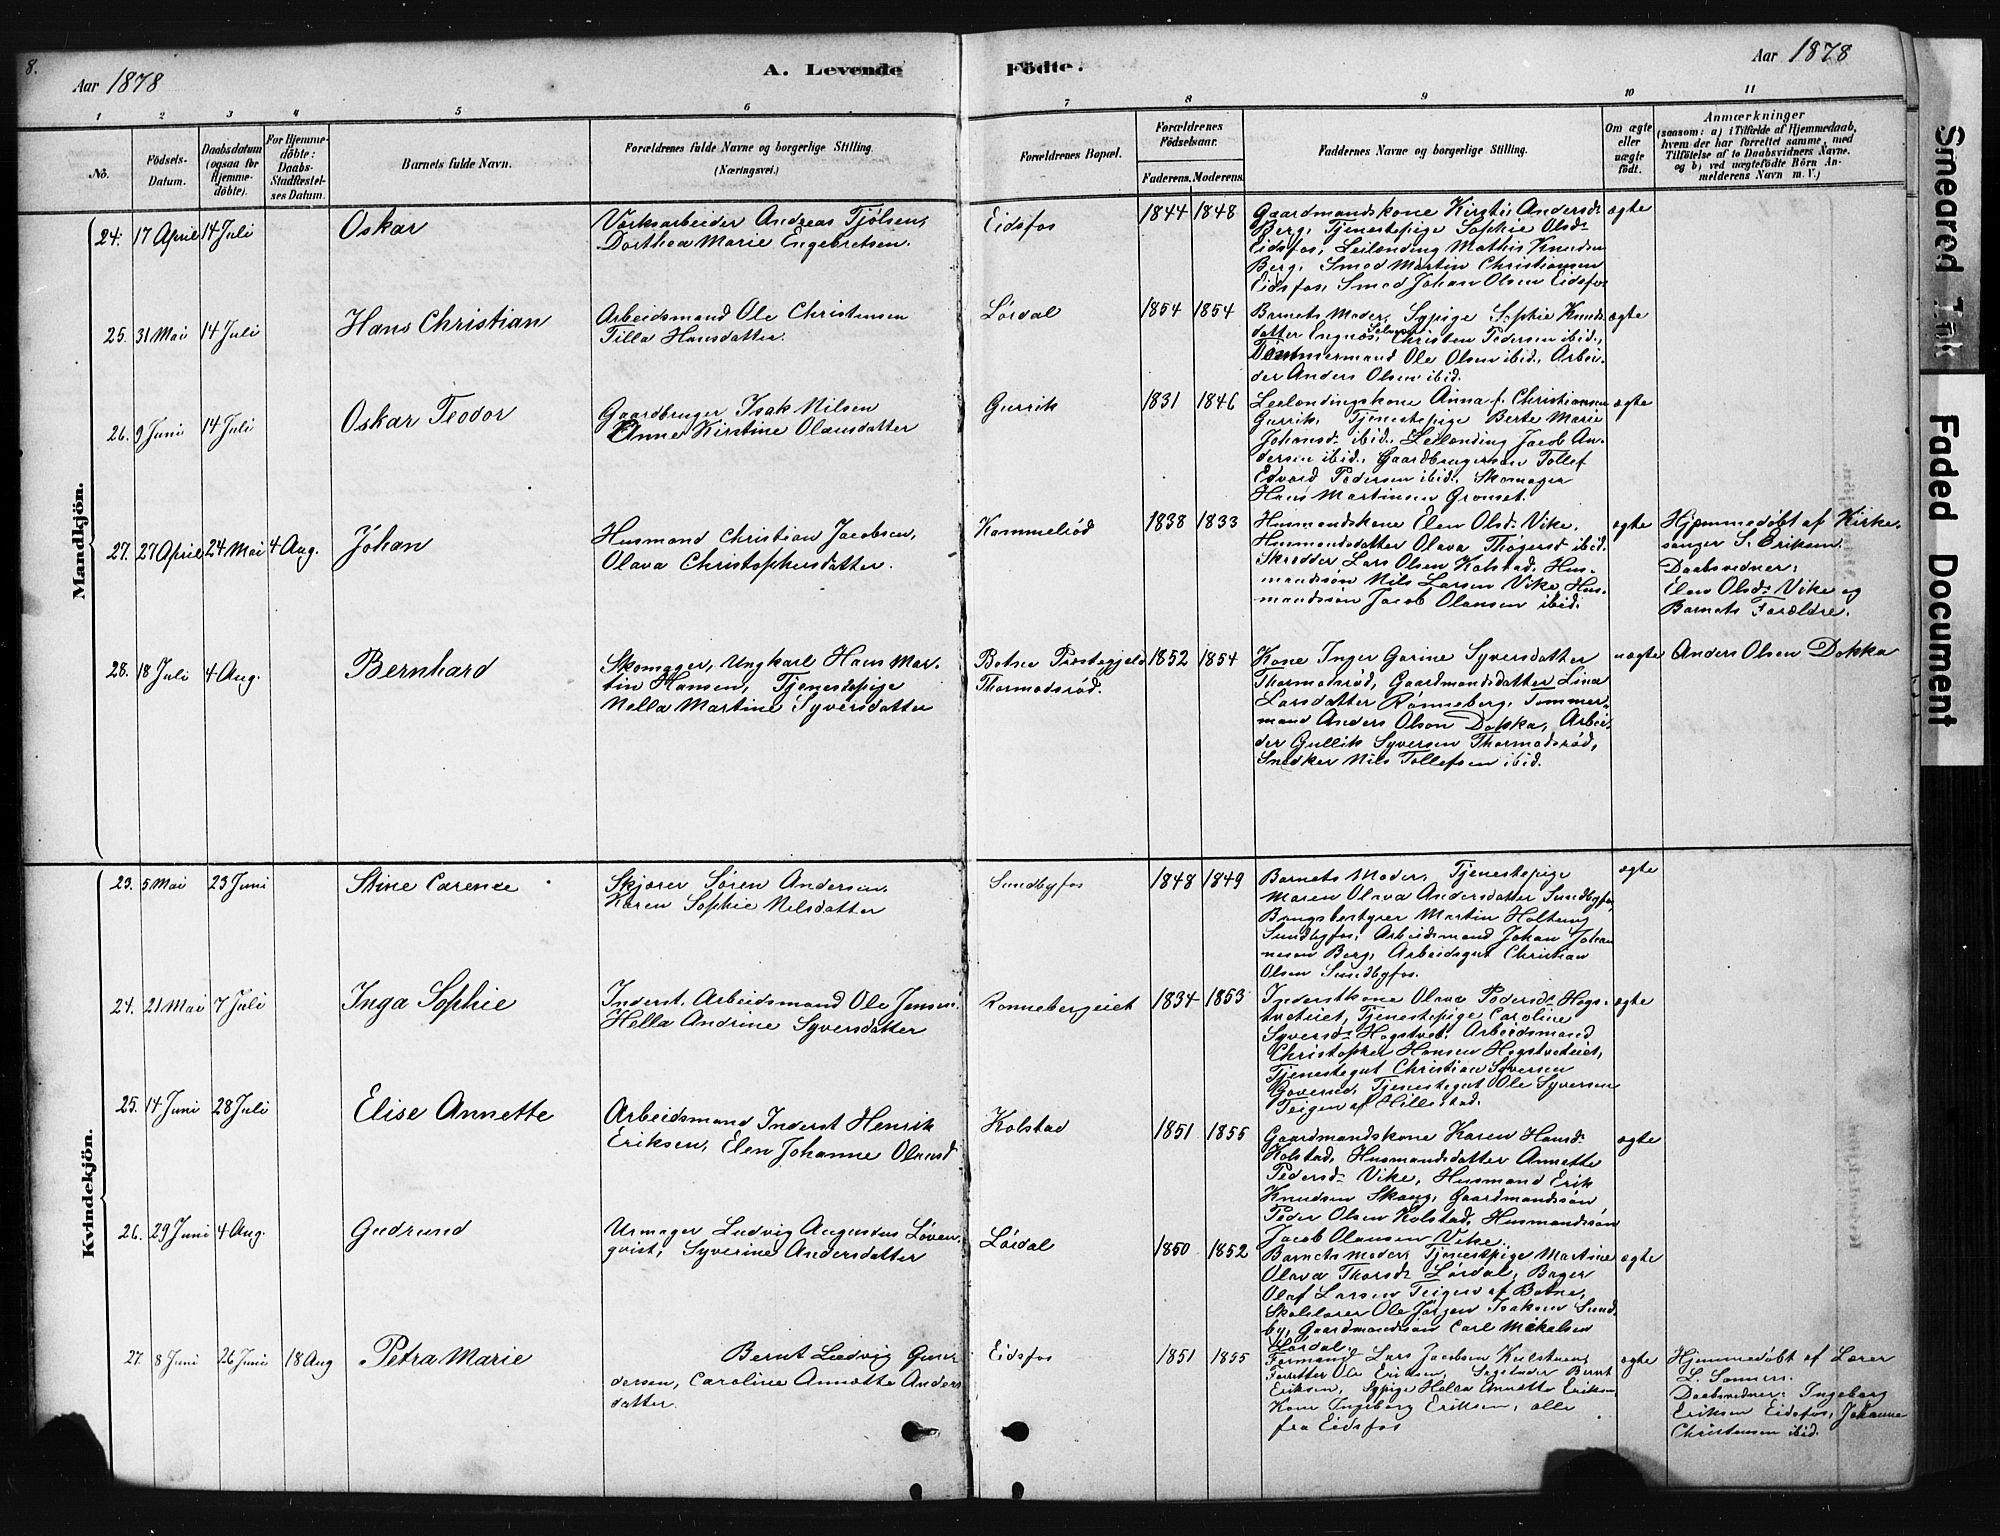 8.
Aar 1878
A. Levende Födte.
Aar 1878
1 2 3 4 5 6 7 8 9 10 11
No.
Födsels-Datum.
Daabsdatum (ogsaa for Hjemme-döbte).
For Hjemme-döbte: Daabs-Stadfæstel-ses Datum.
Barnets fulde Navn.
Forældrenes fulde Navne og borgerlige Stilling.
(Næringsvei.)
Forældrenes Bopæl.
Forældrenes Födselsaar.
Faderens. Moderens.
Faddernes Navne og borgerlige Stilling.
Om ægte eller uægte födt.
Anmærkninger
(saasom: a) i Tilfælde af Hjemmedaab,
hvem der har forrettet samme, med
Tilföielse af to Daabsvidners Navne.
og b) ved uægtefödte Börn An-
melderens Navn m. V.)
Mandkjön.
24. 17 April 14 Juli
Oskar
Værksarbeider Andreas Tjølsen,
Dorthea Marie Engebretsen.
Eidsfos
1844 1848
Gaardmandskone Kirstie Andersd:
Berg, Tjenestepige Sophie Olsd:
Eidsfos, Leilending Mathis Knudsen
Berg, Smed Martin Christiansen
Eidsfos, Smed Johan Olsen Eidsfos
ægte
25. 31 Mai 14 Juli
Hans Christian
Arbeidsmand Ole Christensen
Tilla Hansdatter.
Lørdal
1854 1854
Barnets Moder, Sypige Sophie Knuds-
datter Engnæs, Christen Pedersen ibid.,
Tømmermand Ole Olsen ibid. Arbei-
der Anders Olsen ibid.
ægte
26. 9 Juni 14 Juli
Oskar Teodor
Gaardbruger Isak Nilsen
Anne Kirstine Olausdatter
Gurrik
1831 1846
Leilendingskone Anna f. Christiansen
Gurrik, Tjenestepige Berte Marie
Johansd: ibid. Leilending Jacob An-
dersen ibid., Gaardbrugersøn Tollef
Edvard Pedersen ibid. Skomager
Hans Martinsen Grønset.
ægte
27. 27 April 24 Mai 4 Aug.
Johan
Husmand Christian Jacobsen,
Olava Christophersdatter.
Kommelrød
1838 1833
Husmandskone Elen Olsd: Vike.
Husmandsdatter Olava Thøgersd: ibid.
Skrædder Lars Olsen Kolstad, Hus-
mandssøn Nils Larsen Vike, Hus-
mandssøn Jacob Olausen ibid.
ægte
Hjemmedøbt af Kirke-
sanger S. Eriksen.
Daabsvidner:
Elen Olsd: Vike og
Barnets Forældre.
28. 18 Juli 4 Aug.
Bernhard
Skomager, Ungkarl Hans Mar-
tin Hansen, Tjenestepige
Nella Martine Syversdatter
Botne Præstegjeld
Thormodsrød.
1852 1854
Kone Inger Gorine Syversdatter
Thormodsrød, Gaardmandsdatter Lina
Larsdatter Rønneberg, Tømmer-
mand Anders Olsen Dokka, Arbei-
der Gullik Syversen Thormodsrød,
Snedker Nils Tollefsen ibid.
uægte
Anders Olsen Dokka
Kvindekjön.
23. 5 Mai 23 Juni
Stine Carence
Skjærer Søren Andersen,
Karen Sophie Nilsdatter
Sundbyfos
1848 1849
Barnets Moder, Tjenestepige
Maren Olava Andersdatter Sundbyfos,
Brugsbestyrer Martin Holtung
Sundbyfos, Arbeidsmand Johan Johan
nesen Berg, Arbeidsgut Christian
Olsen Sundbyfos.
ægte
24. 21 Mai 7 Juli
Inga Sophie
Inderst, Arbeidsmand Ole Jensen.
Hella Andrine Syversdatter
Rønnebergeiet
1834 1853
Inderstkone Olava Pedersd: Hogs-
tveteiet, Tjenestepige Caroline
Syversd: Hogstvet, Arbeidsmand
Christopher Hansen Hogstveteiet,
Tjenestegut Christian Syversen
Tjenestegut Ole Syversen
Teigen af Hillestad.
ægte
25. 14 Juni 28 Juli
Elise Annette
Arbeidsmand Inderst Henrik
Eriksen, Elen Johanne Olausd
Kolstad
1851 1855
Gaardmandskone Karen Hansd:
Kolstad, Husmandsdatter Annette
Pedersd: Vike, Husmand Erik
Knudsen Skaug, Gaardmandssøn
Peder Olsen Kolstad, Husmandssøn
Jacob Olausen Vike.
ægte
26. 29 Juni 4 Aug.
Gudrund
Urmager Ludvig Augustus Løven-
qvist, Syverine Andersdatter
Lørdal
1850 1852
Barnets Moder, Tjenestepige Martine
Olava Thorsd: Lørdal, Bager
Olaf Larsen Teigen af Botne,
Skolelærer Ole Jørgen Isaksen Sund-
by, Gaardmandssøn Carl Mikalsen
Lørdal
ægte
27. 8 Juni 26 Juni 18 Aug
Petra Marie
Bernt Ludvig Gun-
dersen, Caroline Annette Anders
datter.
Eidsfos
1851 1855
Formand Lars Jacobsen
Forretter Ole Eriksen, Bernt
Eriksen, Sypige Hella Annette Eriksen
Kone Ingeborg Eriksen, alle
fra Eidsfos
ægte
Hjemmedøbt af Lærer
L. Sonners.
Daabsvidner: Ingeborg
Eriksen Eidsfos, Johanne
Christensen ibid.
Smeared Ink
Faded Document